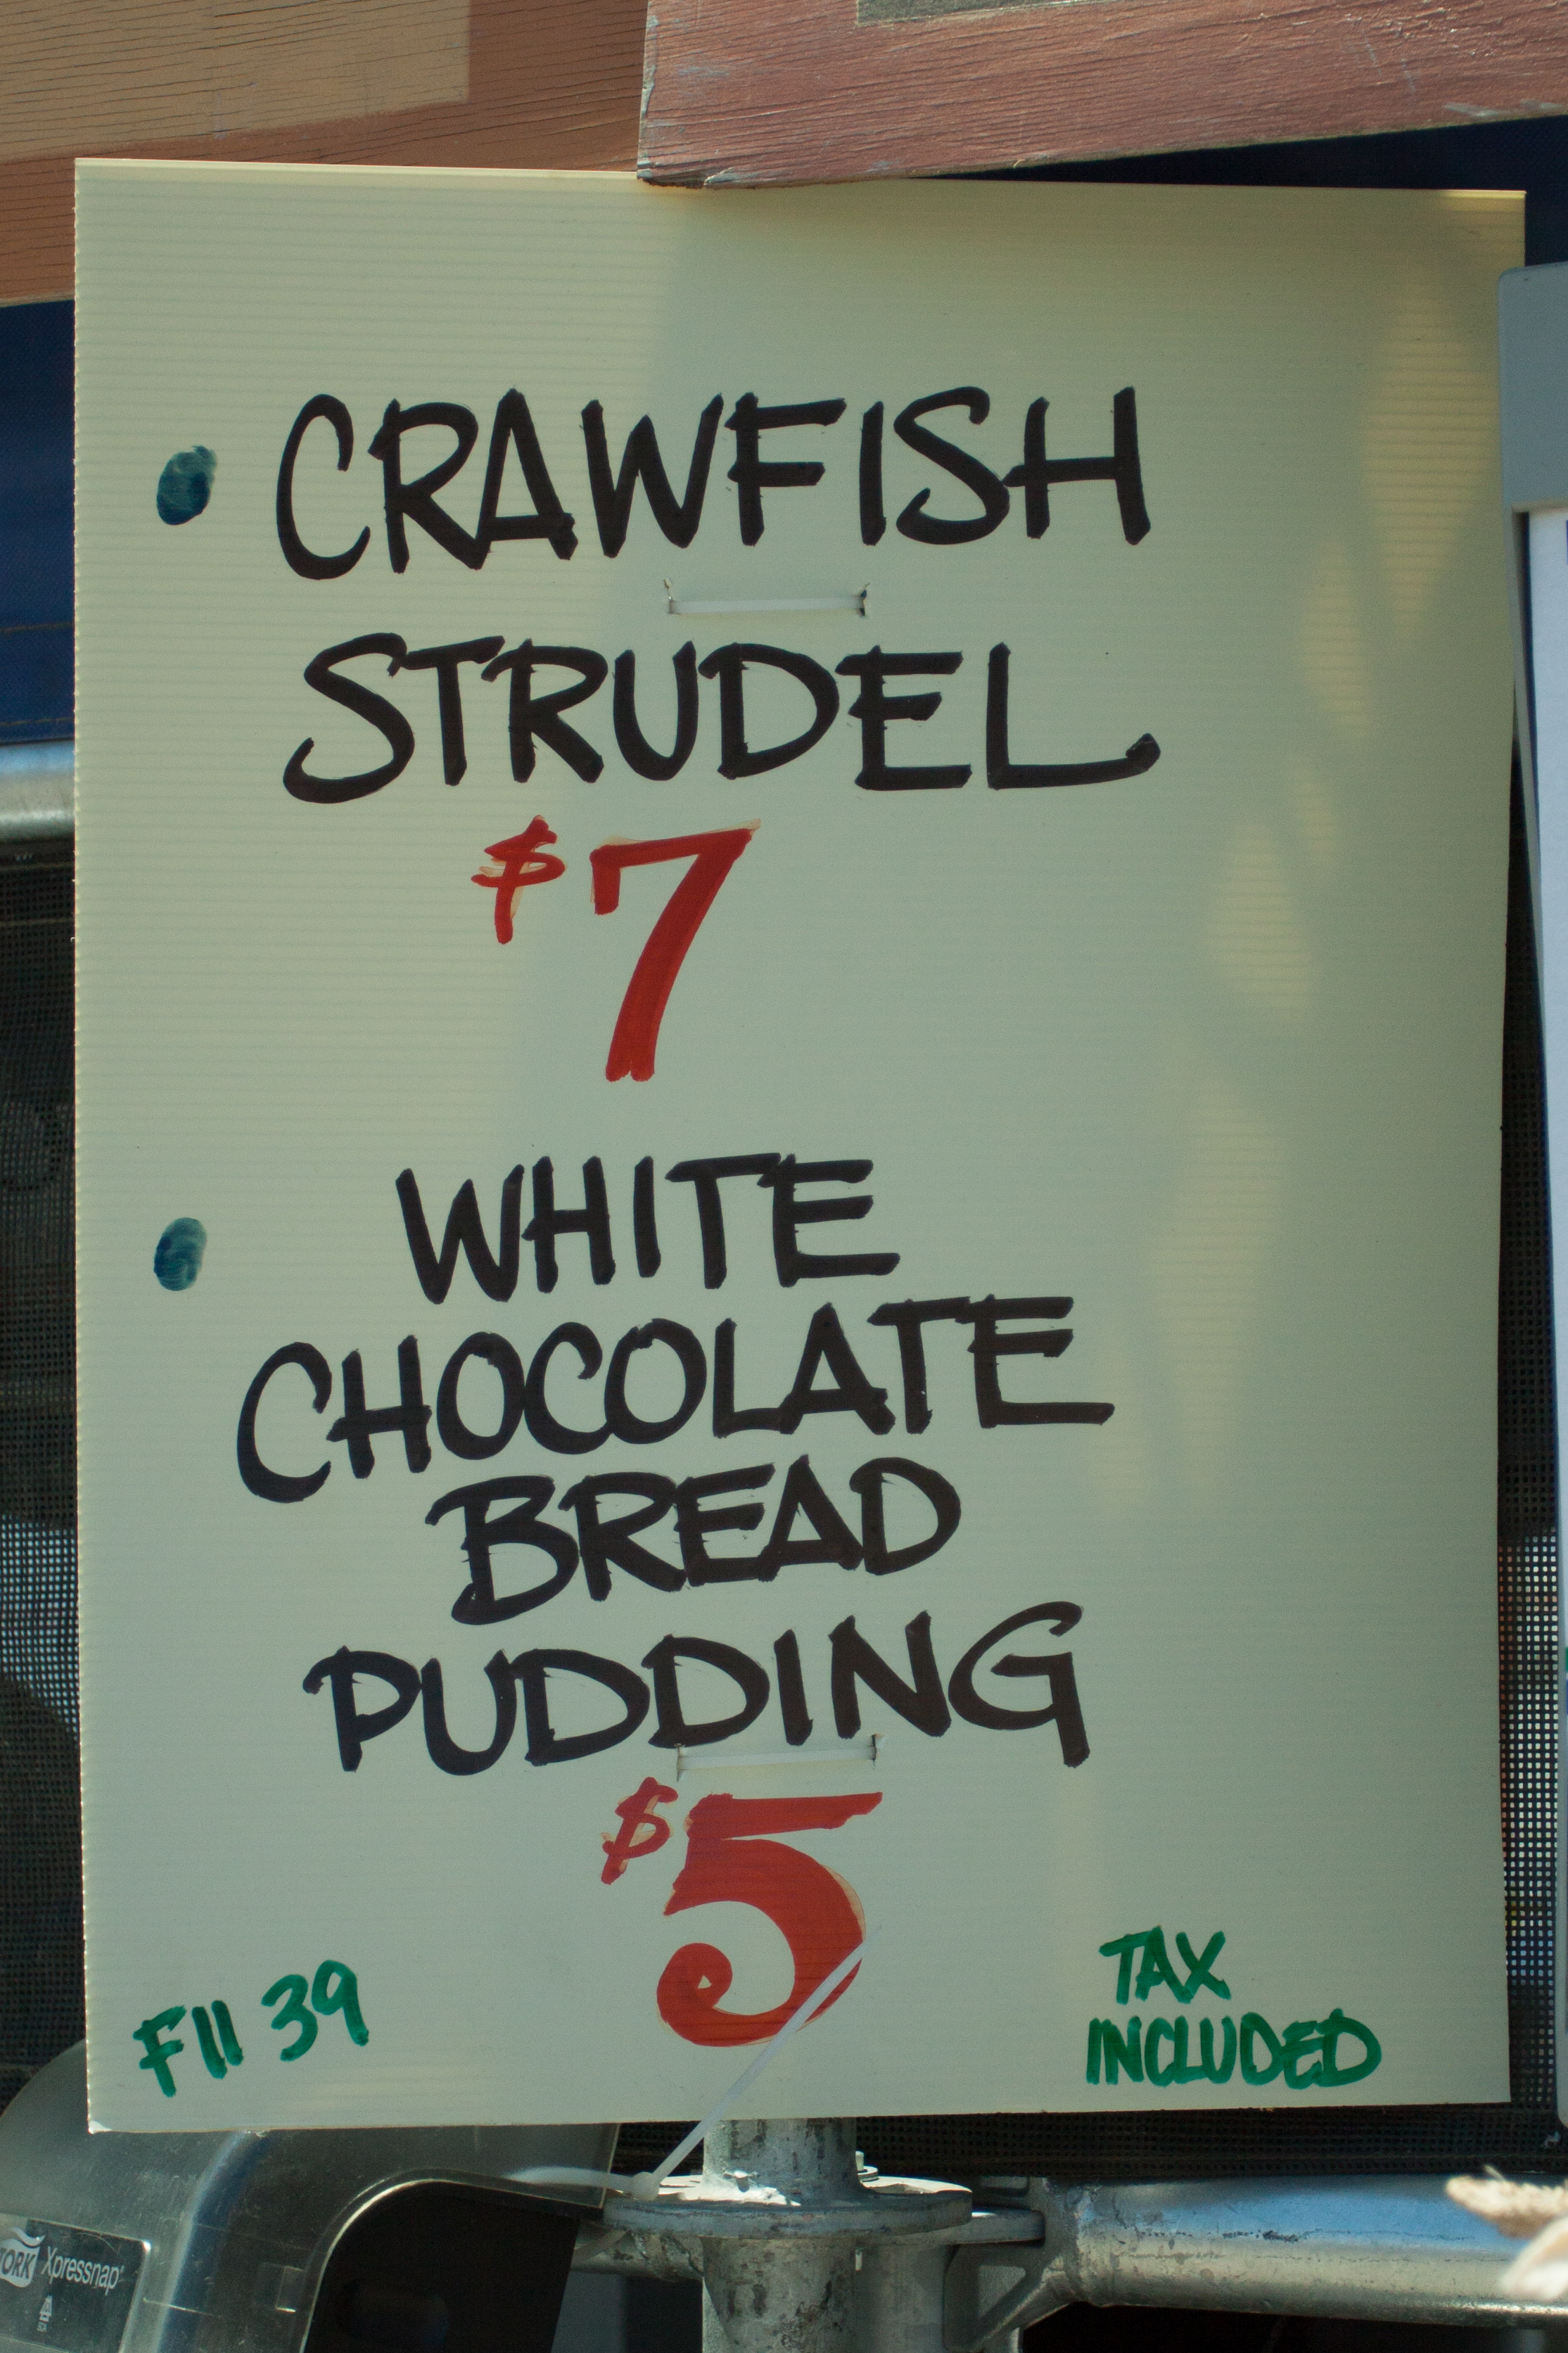 • CRAWFISH
STRUDEL
$7
• WHITE
CHOCOLATE
BREAD
PUDDING
$5
F11 39
TAX
INCLUDED
Xpressnap